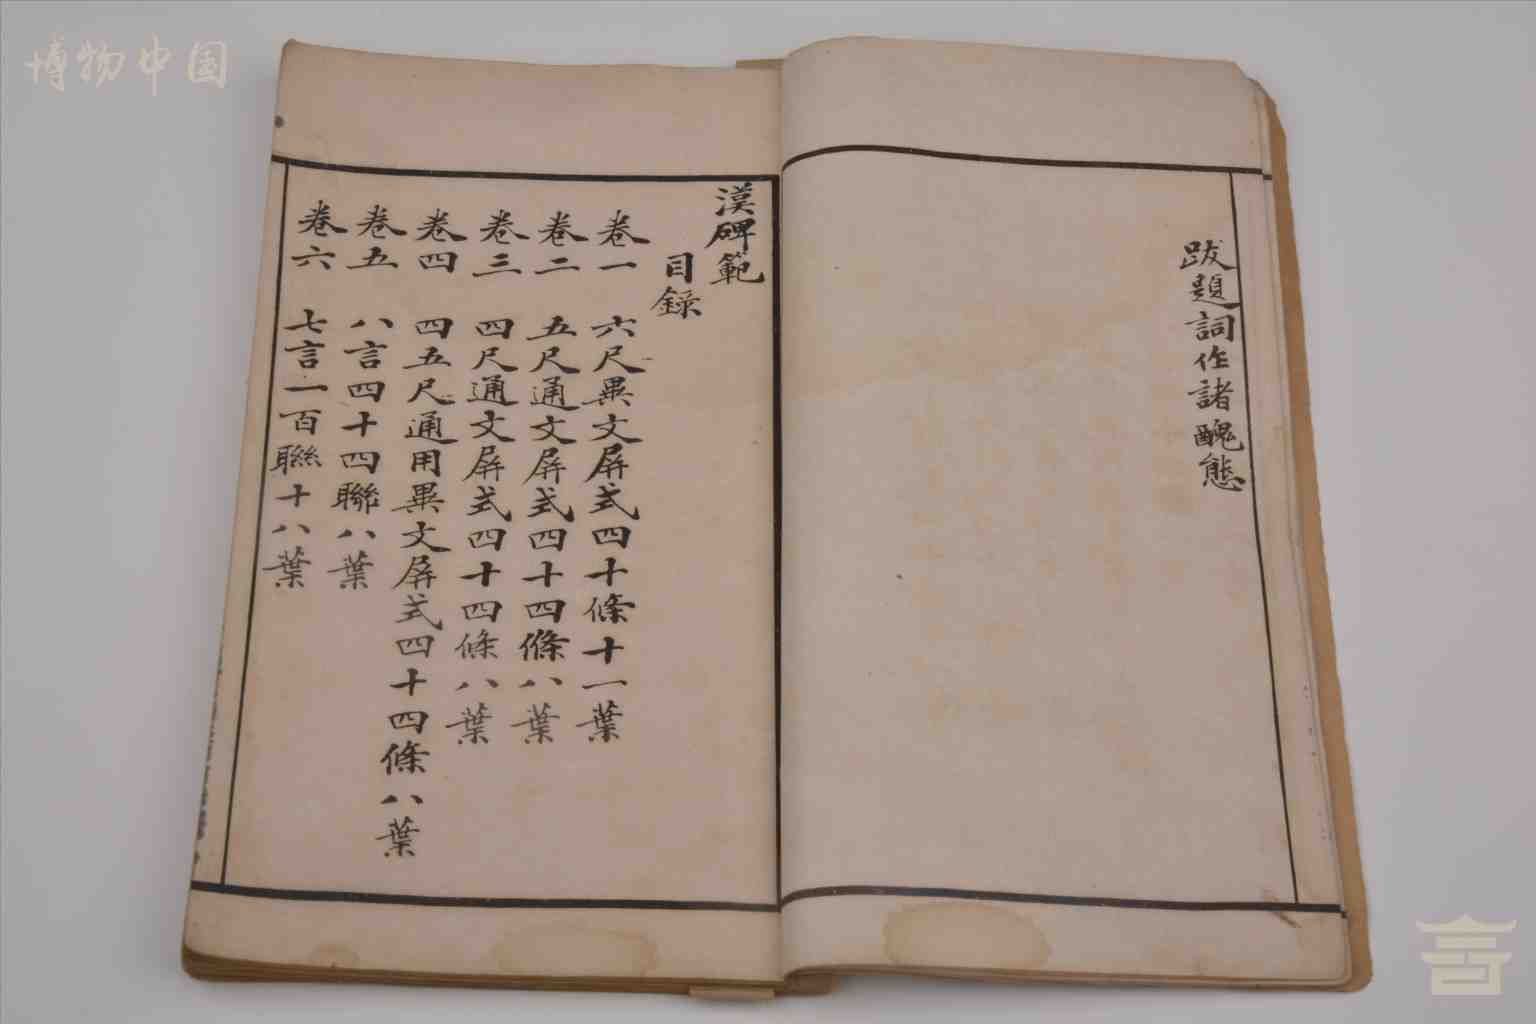 博物中国
跋題詞作諸醜態
漢碑範
目錄
卷一 六尺異文屏式四十條十一葉
卷二 五尺通文屏式四十四條八葉
卷三 四尺通文屏式四十四條八葉
卷四 四五尺通用異文屏式四十四條八葉
卷五 八言四十四聯八葉
卷六 七言一百聯十八葉